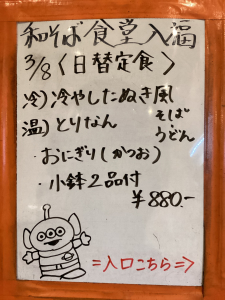 和そば食堂入福
3/8〈日替定食〉
冷)冷やしたぬき風
温)とりなん
そば・うどん
・おにぎり(かつお)
・小鉢2品付
¥880-
=入口こちら=>